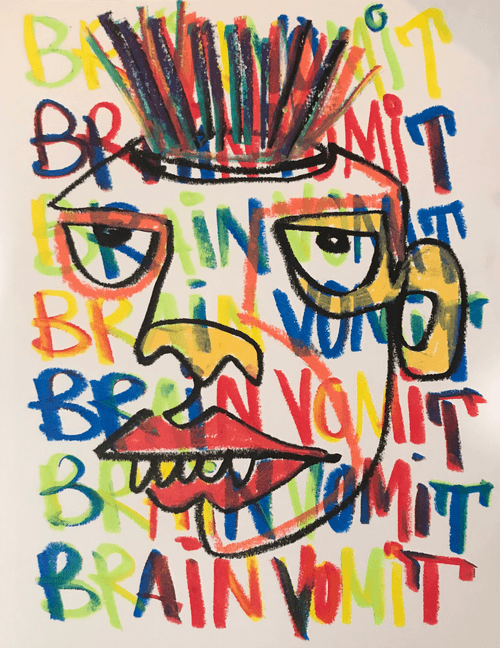 BRAIN VOMiT
BRAIN VOMiT
BRAiN VOMIT
BRAiN VOMIT
BRAiN VOMIT
BRAIN VOMiT
BRAIN VOMiT